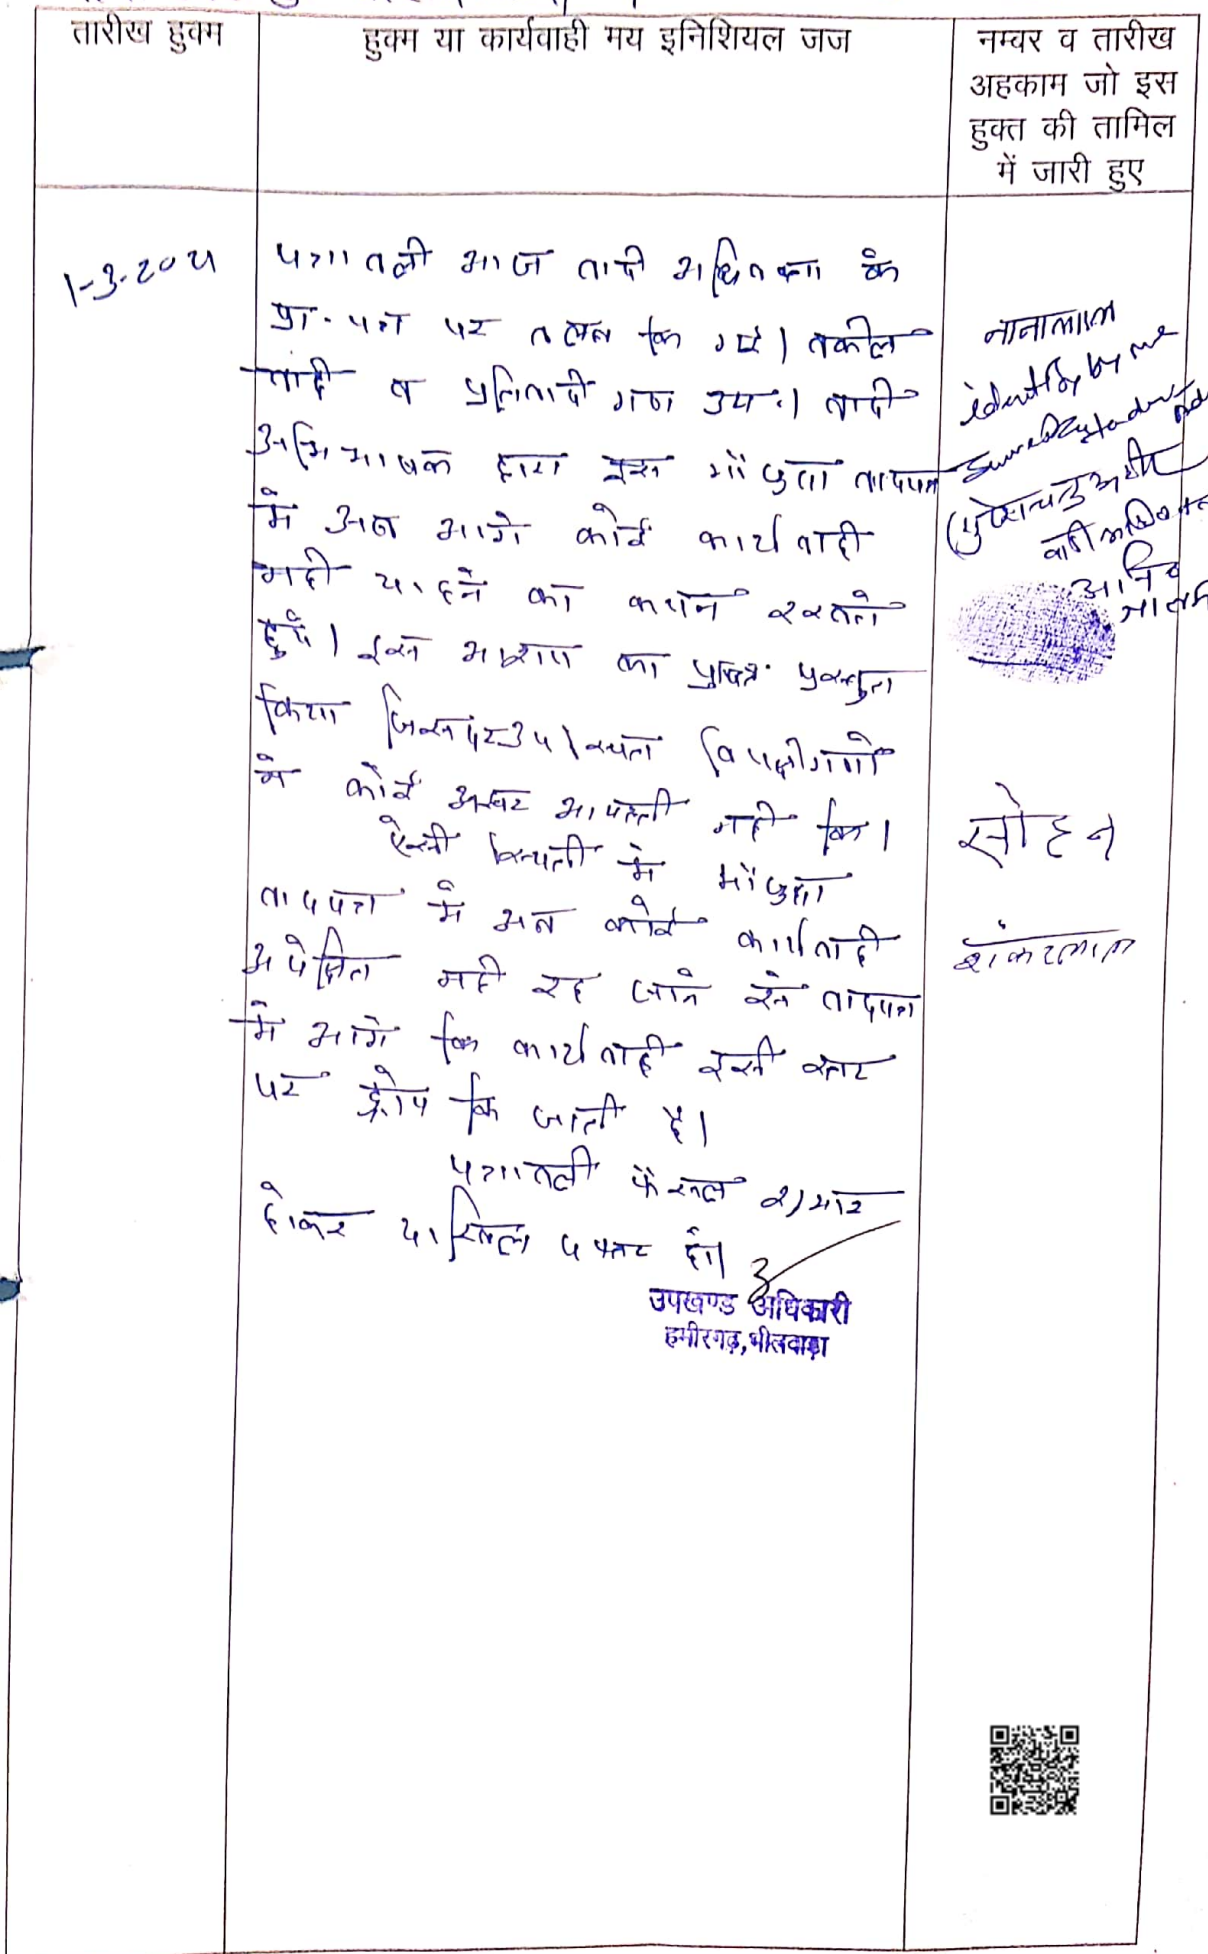 तारीख हुक्म
हुक्म या कार्यवाही मय इनिशियल जज
नम्बर व तारीख
अहकाम जो इस
हुक्त की तामिल
में जारी हुए
1-3-2021
पत्रावली आज वादी अधिवक्ता के
प्रा. पत्र पर तलब कि गई। वकील
वादी व प्रतिवादी गण उप.। वादी
अभिभाषक द्वारा इस मौजुदा वादपत्र
में अब आगे कोई कार्यवाही
नही चाहने का कथन करते
हुये। इस आशय का प्रस्तुत
किया जिस पर उपस्थित विपक्षीगणो
ने कोई आपत्ती नही कि।
ऐसी स्थिती में मौजुदा
वादपत्र में अब कोई कार्यवाही
अपेक्षित नही रह जाने से वादपत्र
में आगे कि कार्यवाही इसी स्तर
पर ड्रोप कि जाती है।
पत्रावली फैसल शुमार
होकर दाखिल दफ्तर हो।
उपखण्ड अधिकारी
हमीरगढ़, भीलवाड़ा
नानालाल
identify by me
सोहन
शंकरलाल